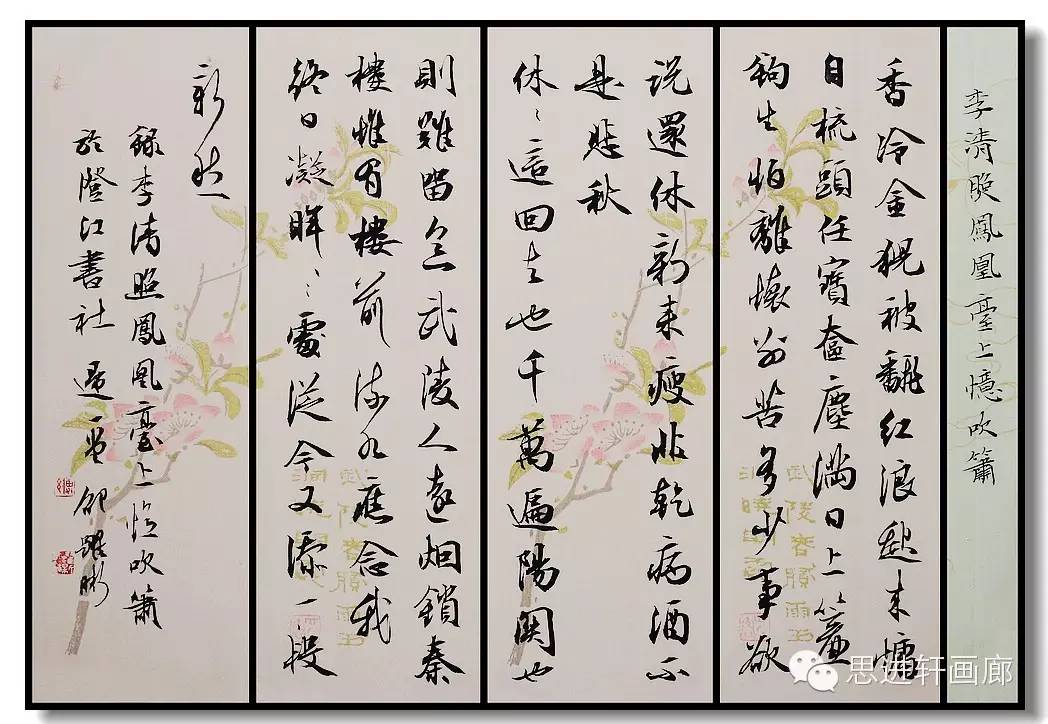 李清照鳳凰臺上憶吹簫
香冷金猊被飜红浪起来慵
自梳頭任寶奩塵滿日上簾
鉤生怕離懷别苦多少事欲
说還休新来瘦非乾病酒不
是悲秋
休〻這回去也千萬遍陽関也
則難留念武陵人遠烟鎖秦
樓惟有樓前流水應念我
終日凝眸〻處從今又添一段
新愁
錄李清照鳳凰臺上憶吹簫
於澄江書社
思进轩画廊